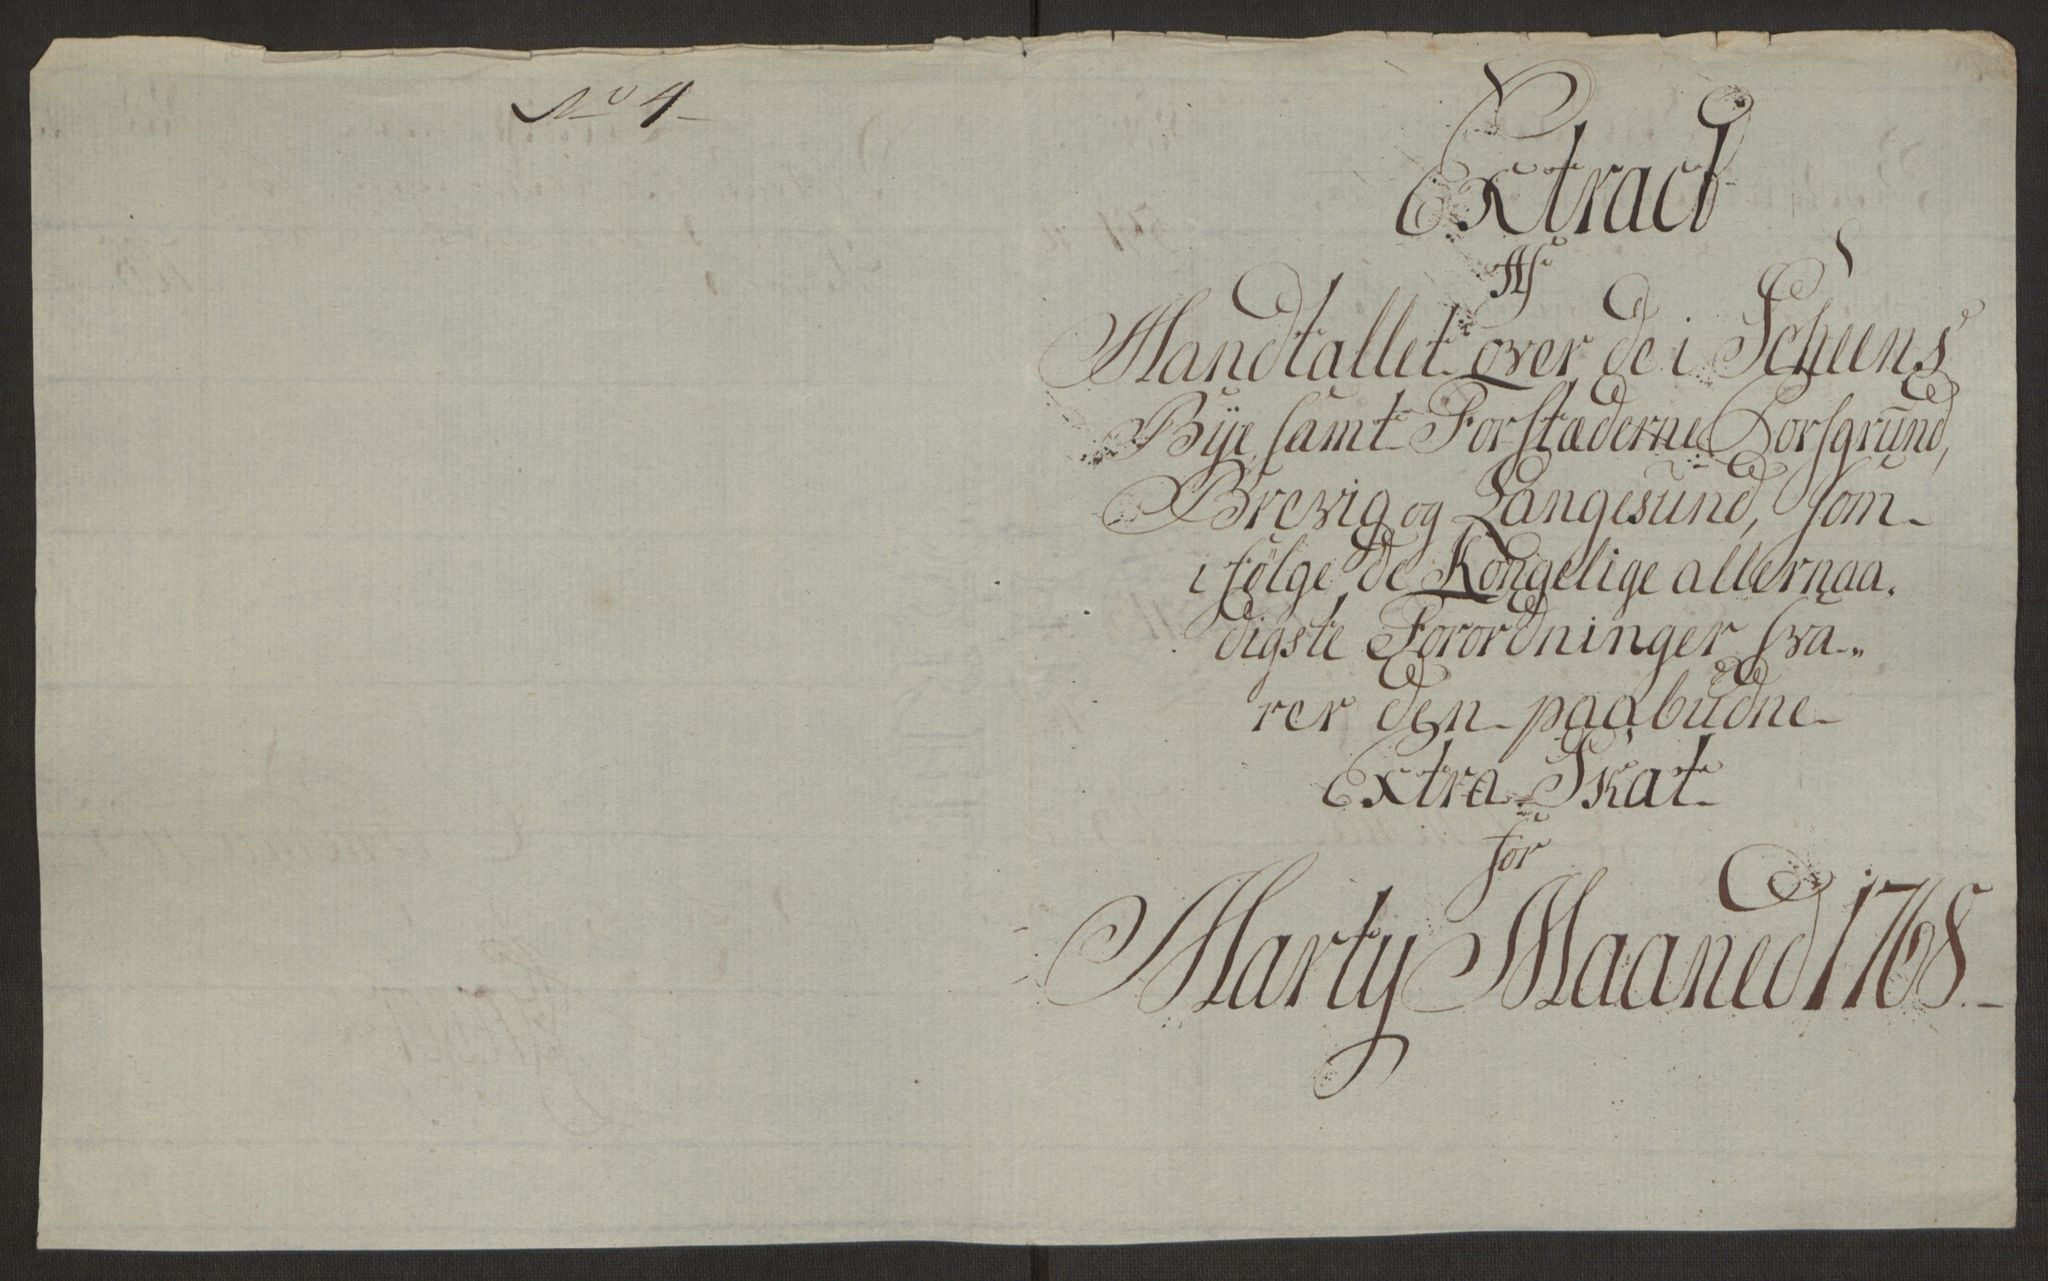 No 4
Extract
Af
Mandtallet over de i Scheens
Bye samt Forstæderne Porsgrund,
Brevig og Langesund, som
i følge de Kongelige allernaa-
digste Forordninger sva-
rer den paabudne
Extra Skat
for
Marty Maaned 1768.